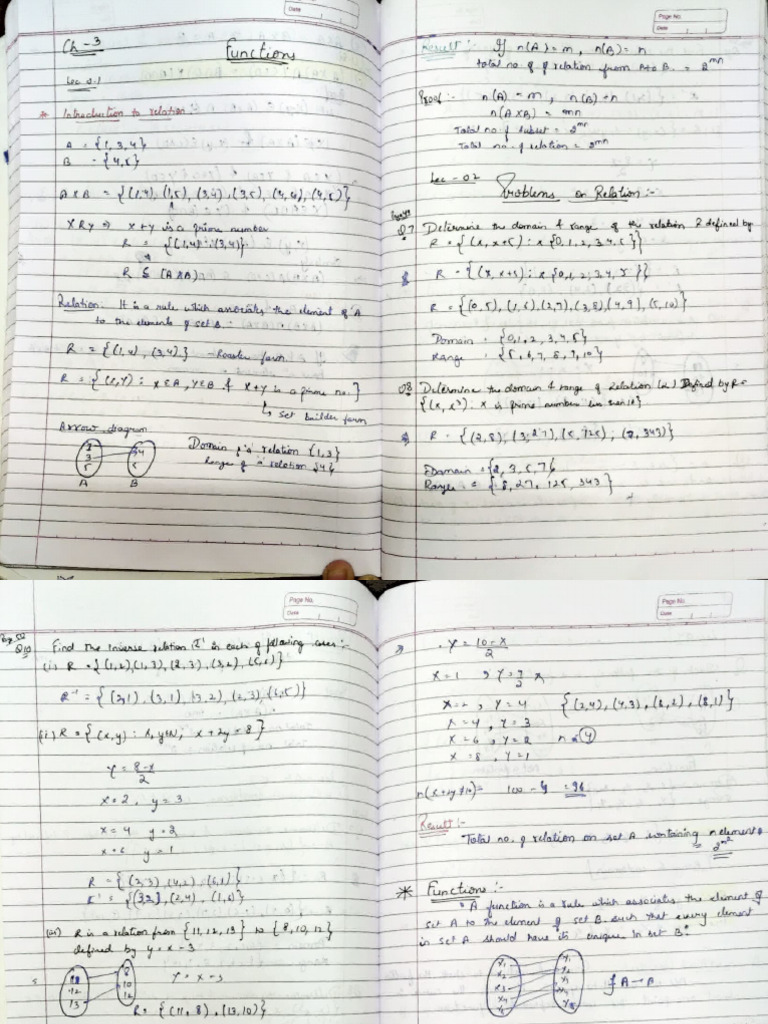 Date
Ch - 3
Functions
Lec 3.1
* Introduction to relation
A = {1, 3, 4}
B = {4,5}
A x B = {(1,4), (1,5), (3,4), (3,5), (4,4), (4,5)}
x R y ⇒ x + y is a prime number
R = {(1,4), (3,4)}
R ⊆ (AxB)
Relation: It is a rule which associates the element of A
to the elements of set B.
R = {(1,4), (3,4)} - Roaster form
R = {(x,y) : x ∈ A, y ∈ B & x+y is a prime no.}
↳ set builder form
Arrow diagram
1
3
5
A
34
5
B
Domain of a relation {1,3}
Range of a relation {4}
Page No.
Date
Result :- If n(A) = m, n(B) = n
Total no. of relation from A to B = 2^mn
Proof :- n(A) = m, n(B) = n
n(AxB) = mn
Total no. of subset = 2^mn
Total no. of relation = 2^mn
Lec - 02
Problems on Relation :-
Q7 Determine the domain & range of the relation R defined by
R = {(x, x+5) : x {0,1,2,3,4,5}}
R = {(x, x+5) : x {0,1,2,3,4,5}}
R = {(0,5), (1,6), (2,7), (3,8), (4,9), (5,10)}
Domain = {0,1,2,3,4,5}
Range = {5,6,7,8,9,10}
Q8 Determine the domain & range of Relation (R) Defined by R =
{(x, x³) : x is prime number less than 10}
R = {(2,8), (3,27), (5,125), (7,343)}
Domain = {2,3,5,7}
Range = {8, 27, 125, 343}
Page No.
Date
Q10 Find the inverse relation R⁻¹ in each of following cases :-
(i) R = {(1,2), (1,3), (2,3), (3,2), (5,6)}
R⁻¹ = {(2,1), (3,1), (3,2), (2,3), (6,5)}
(ii) R = {(x,y) : x, y ∈ N, x + 2y = 8}
y = 8-x / 2
x = 2, y = 3
x = 4 y = 2
x = 6 y = 1
R = {(2,3), (4,2), (6,1)}
R⁻¹ = {(3,2), (2,4), (1,6)}
(iii) R is a relation from {11,12,13} to {8,10,12}
defined by y = x - 3
11
12
13
8
10
12
y = x - 3
R = {(11,8), (13,10)}
Page No.
Date
y = 10-x / 2
x = 1
x = 2, y = 4 {(2,4), (4,3), (6,2), (8,1)}
x = 4, y = 3
x = 6, y = 2
x = 8, y = 1
n(x+2y≠10) = 100 - 4 = 96
Result :-
Total no. of relation on set A containing n elements
= 2^n²
* Functions :-
A function is a rule which associates the element of
set A to the element of set B such that every element
in set A should have its unique in set B.
x₁
x₂
x₃
x₄
y₁
y₂
y₃
y₄
f A → B